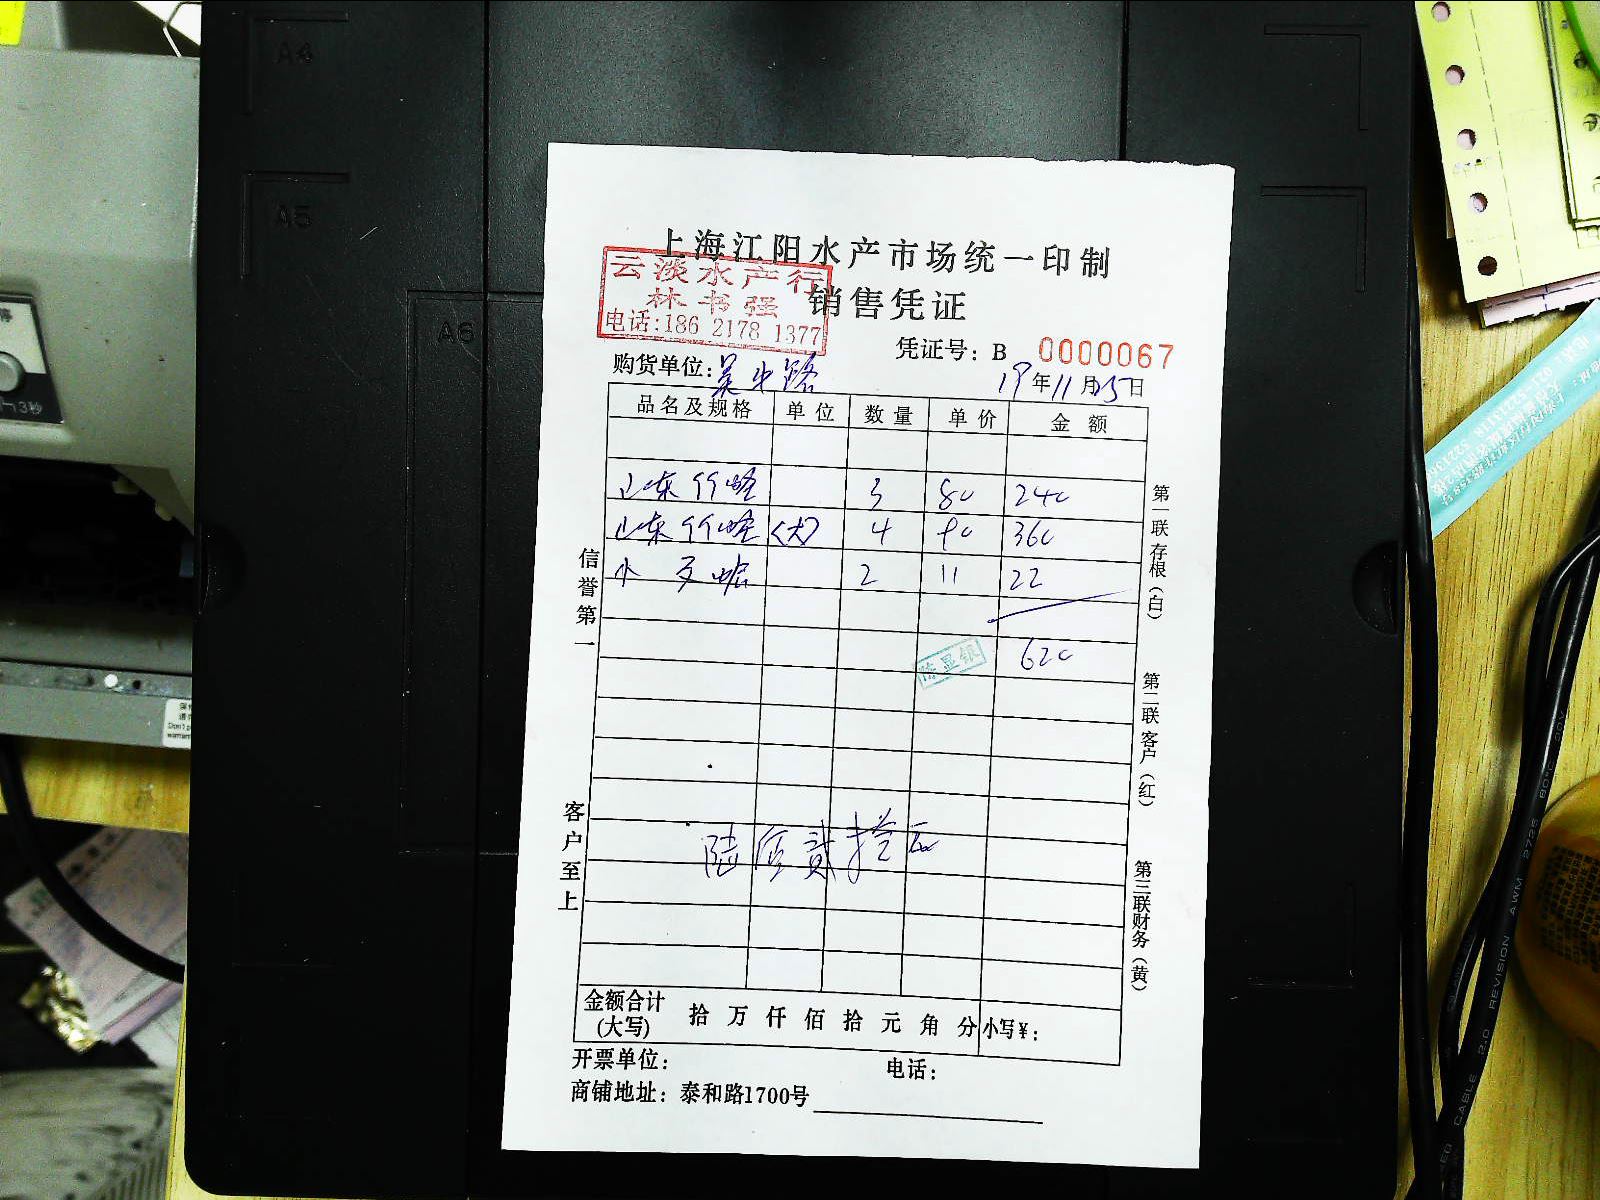 A4
A5
A6
上海江阳水产市场统一印制
销售凭证
云淡水产行
林书强
电话:186 2178 1377
凭证号: B 0000067
购货单位: 吴中路 19年11月25日
品名及规格 单位 数量 单价 金额
山东竹蛏 3 80 240
山东竹蛏 (大) 4 90 360
水 2 11 22
620
陈显银
陆佰贰拾元
信誉第一
客户至上
第一联存根(白)
第二联客户(红)
第三联财务(黄)
金额合计(大写) 拾 万 仟 佰 拾 元 角 分 小写¥:
开票单位: 电话:
商铺地址: 泰和路1700号